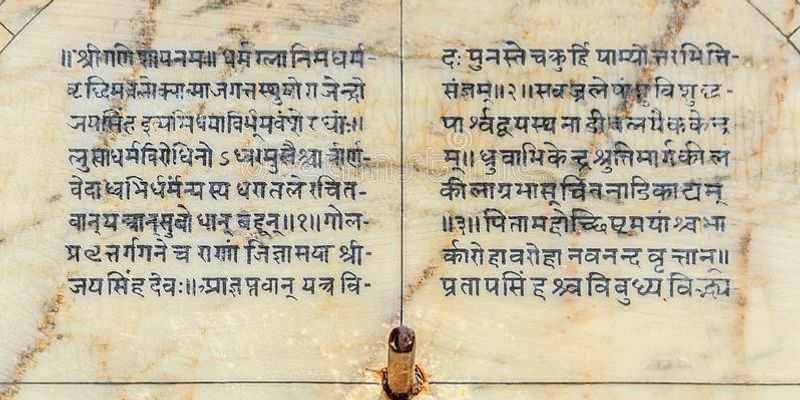 ॥श्रीगणेशायनमः॥ धर्मग्लानिमधर्म-
वृद्धिमवलोक्यात्माजगत्तस्थुषोराजेन्द्रो
जयसिंहइत्यभिधयाविर्भूयवंशेरघोः॥
लुप्त्वाधर्मविरोधिनोऽध्वरमुखैश्चीर्ण-
वेदाध्वभिर्धर्मंन्यस्यधरातलेरचित-
वान्यन्त्रान्सुबोधान् बहून्॥१॥गोल-
प्रवृत्तेर्गगनेचराणां जिज्ञासयाश्री-
जयसिंहदेवः॥आज्ञप्तवान् यन्त्रवि-
दः पुनस्तेचक्रुर्हि याम्योत्तरभित्ति-
संज्ञम्॥२॥सवज्रलेपांशुविशुद्ध-
पार्श्वद्वयस्थनाडीवलयैककेन्द्र
म्॥ध्रुवाभिकेन्द्रश्रुतिमार्गकील
कीलाग्रभासूचितनाडिकाद्यम्
॥३॥
र्कारोहावरोहान्नवनन्दवृत्तान्॥
प्रतापसिंहश्चविबुध्यविद्भ्य